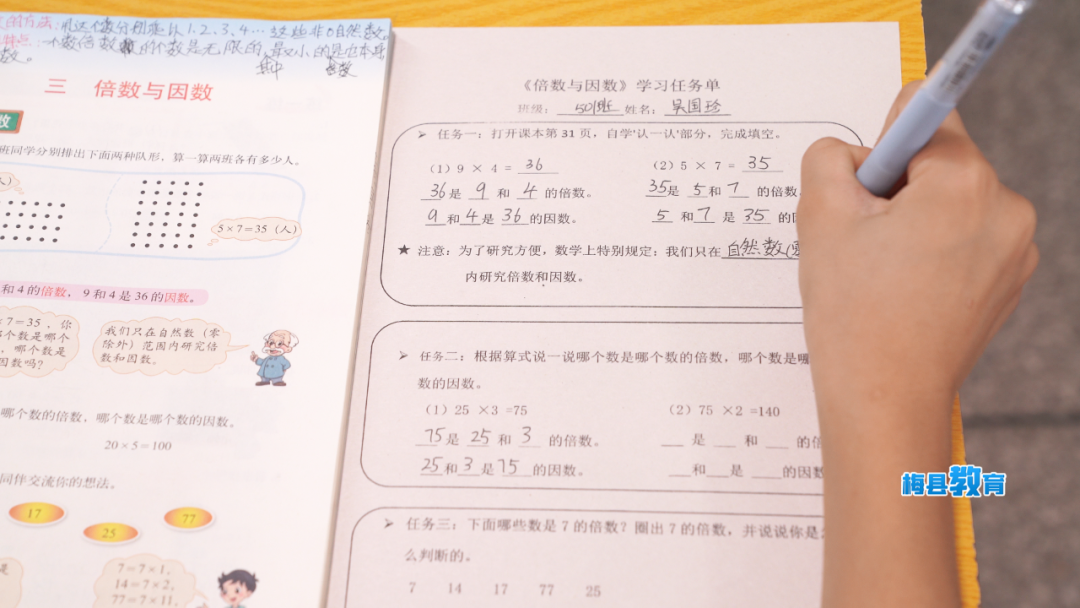 的方法:用这个数分别乘以1、2、3、4…这些非0自然数。
特点:一个数倍数的个数是无限的,最小的是它本身
数。
三 倍数与因数
数
班同学分别排出下面两种队形,算一算两班各有多少人。
人)
5×7=35(人)
和4的倍数,9和4是36的因数。
×7=35,你
个数是哪个
、哪个数是
因数吗?
我们只在自然数(零
除外)范围内研究倍
数和因数。
哪个数的倍数,哪个数是哪个数的因数。
20×5=100
同伴交流你的想法。
17
25
77
是
7=7×1,
14=7×2,
77=7×11,
《倍数与因数》学习任务单
班级: 501班 姓名: 吴国珍
➢ 任务一:打开课本第31页,自学'认一认'部分,完成填空。
(1)9 × 4 = 36 (2)5 × 7 = 35
36是 9 和 4 的倍数。 35是 5和 7 的倍数
9和4是 36 的因数。 5 和7 是 35 的
★ 注意:为了研究方便,数学上特别规定:我们只在自然数(
内研究倍数和因数。
➢ 任务二:根据算式说一说哪个数是哪个数的倍数,哪个数是哪
数的因数。
(1)25 ×3 =75 (2)75 ×2 =140
75是 25 和 3 的倍数。 ___ 是 ___ 和 ___ 的倍
25和3是75 的因数。 ___和___是 ___的因数
➢ 任务三:下面哪些数是7的倍数?圈出7的倍数,并说说你是怎
么判断的。
7 14 17 77 25
梅县教育